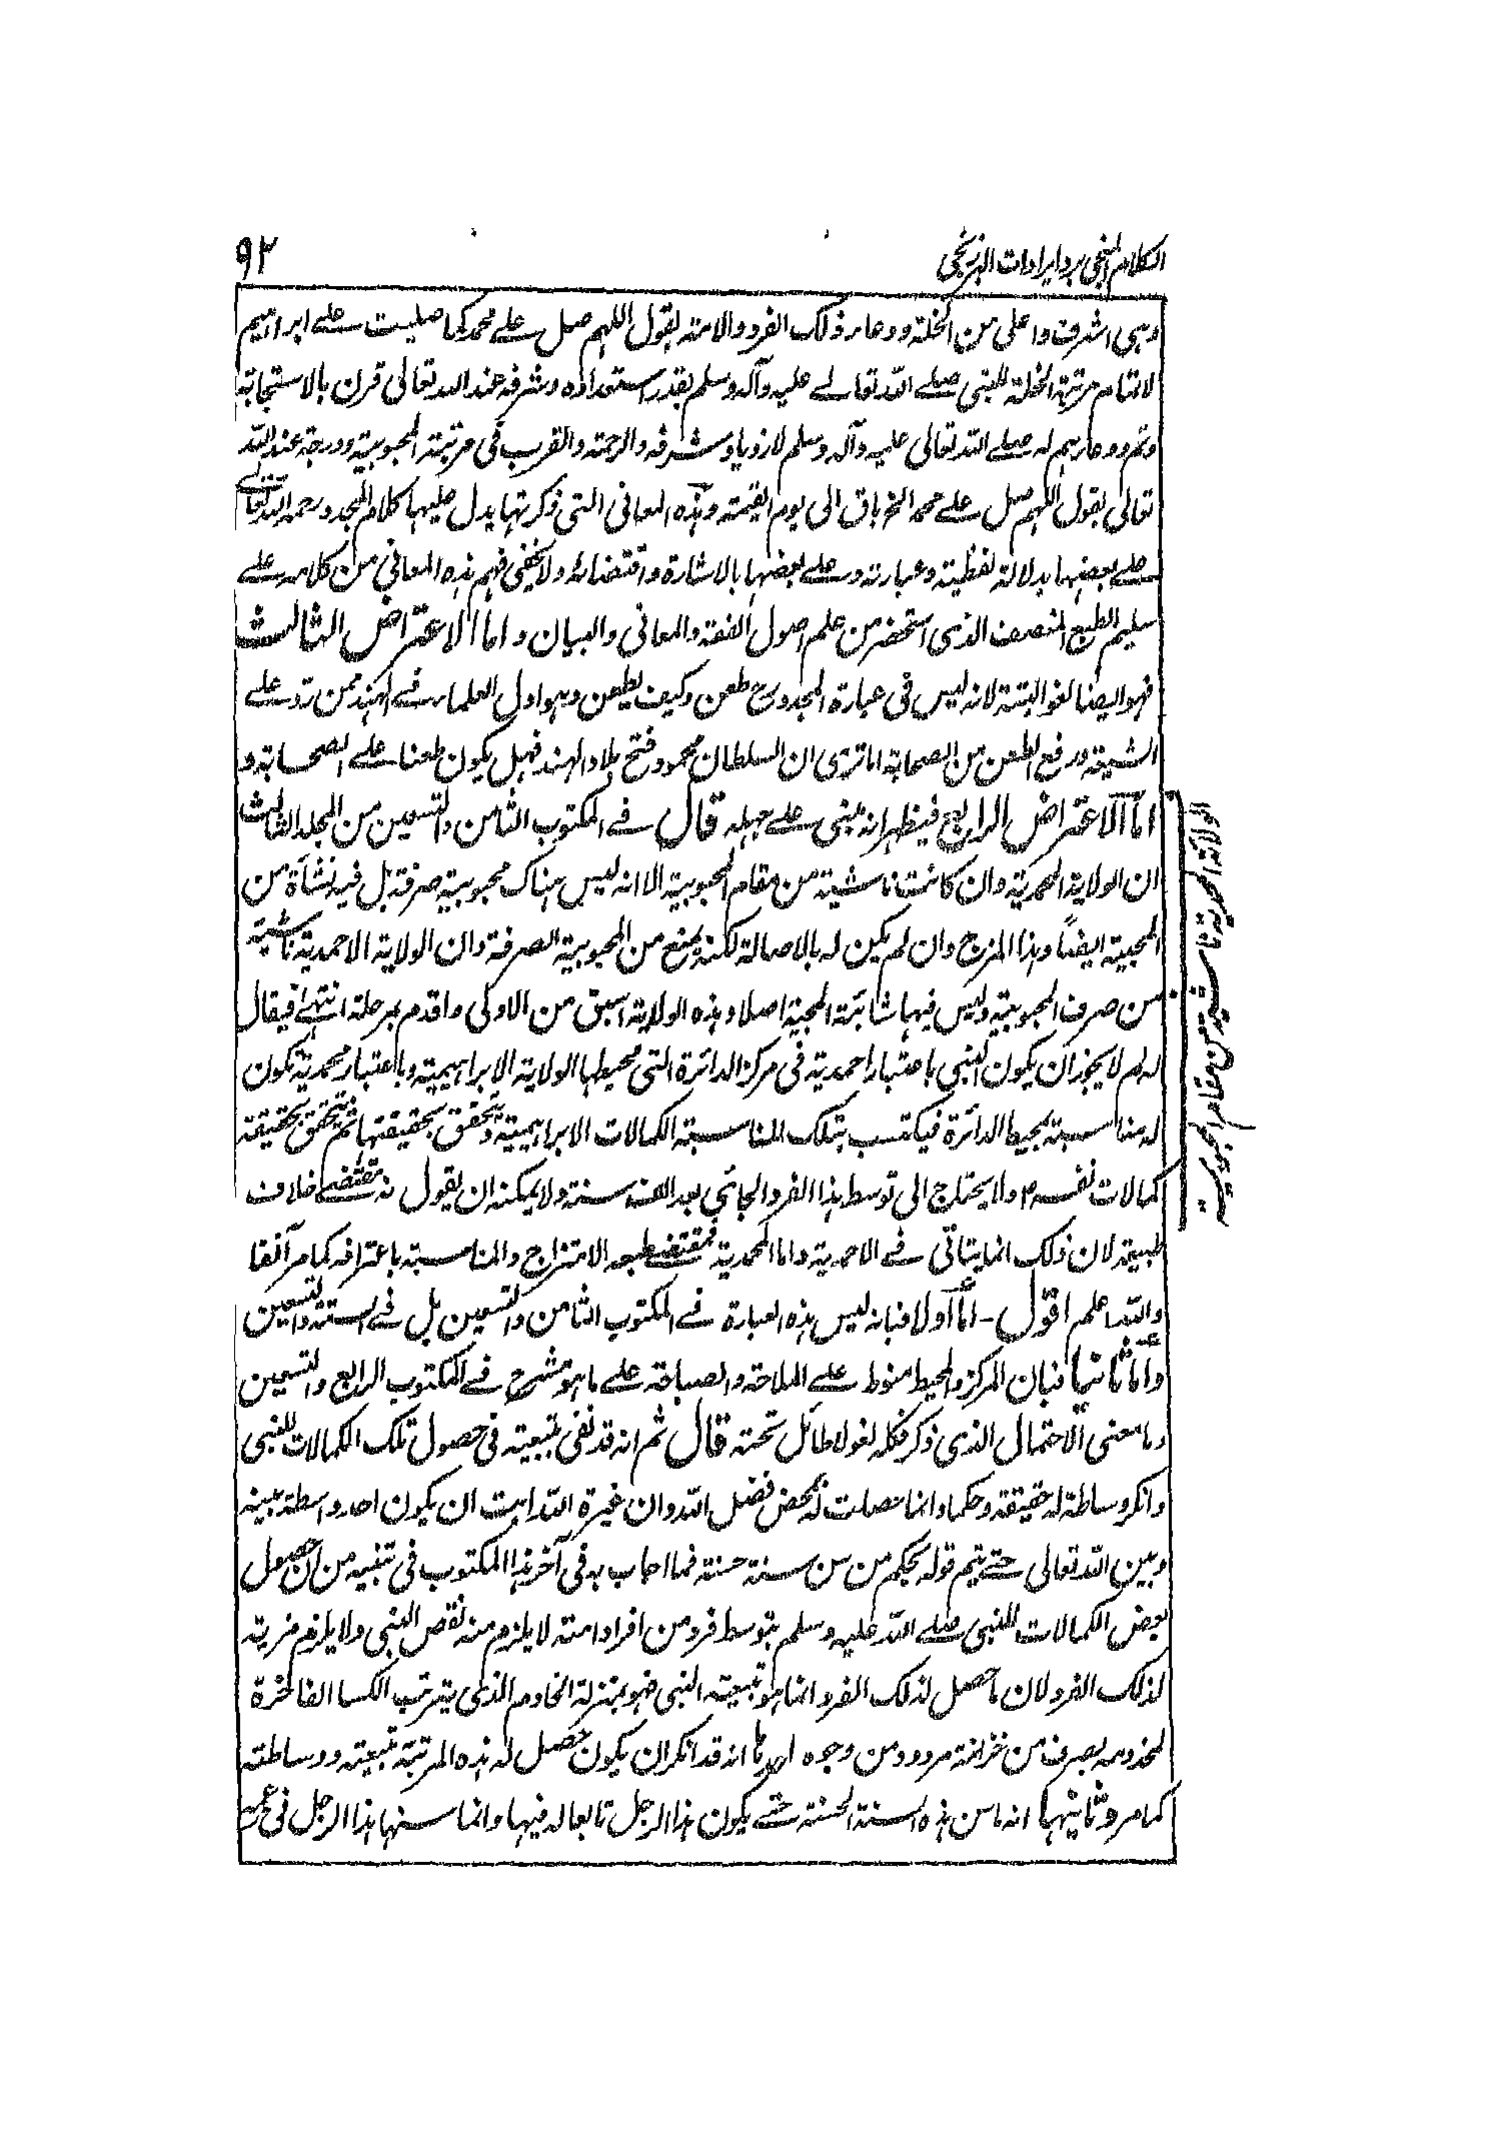 الكلام المنجي برد ايرادات البرزنجي
۹۲
وهى اشرف واعلى من الخلة ودعاء ذلك الفرد والامة بقول اللهم صل على محمد كما صليت على ابراهيم
لاتمام مرتبة الخلة للنبى صلى الله تعالى عليه وآله وسلم بقدر استعداده وشرفه عند الله تعالى قرن بالاستجابة
وتم ودعاءهم له صلى الله تعالى عليه وآله وسلم لازدياد شرفه والرحمة والقرب فى مرتبة المحبوبية ودرجة عند الله
تعالى بقول اللهم صل على محمد الخ باق الى يوم القيمة وهذه المعانى التى ذكرتها يدل عليها كلام المجدد رحمه الله تعالى
على بعضها بدلالة لفظية وعبارته وعلى بعضها بالاشارة واقتضائه ولا يخفى فهم هذه المعانى من كلامه على
سليم الطبع المنصف الذى استحضر من علم اصول الفقه والمعانى والبيان واما الاعتراض الثالث
فهو ايضا لغو البتة لانه ليس فى عبارة المجدد رح طعن وكيف يطعن وهو اول العلماء فى الهند ممن رد على
الشيعة ودفع الطعن من الصحابة اما ترى ان السلطان محمود فتح بلاد الهند فهل يكون طعنا على الصحابة و
اما الاعتراض الرابع فيظهر انه مبنى على جهله قال فى المكتوب الثامن والتسعين من المجلد الثالث
ان الولاية المحمدية وان كانت ناشية من مقام المحبوبية الا انه ليس هناك محبوبية صرفة بل فيه نشأة من
المحبية ايضاً وهذا المزج وان لم يكن له بالاصالة لكنه يمنع من المحبوبية الصرفة وان الولاية الاحمدية ناشية
من صرف المحبوبية وليس فيها شائبة المحبية اصلا وهذه الولاية اسبق من الاولى واقدم بمرحلة انتهى فيقال
له لم لا يجوز ان يكون النبى باعتبار احمدية فى مركز الدائرة التى محيطها الولاية الابراهيمية وباعتبار محمدية تكون
له مناسبة بمحيط الدائرة فيكتسب بتلك المناسبة الكمالات الابراهيمية ويتحقق بحقيقتها ثم يتحقق بحقيقة
كمالات نفسه ولا يحتاج الى توسط هذا الفرد الجائى بعد الف سنة ولا يمكنه ان يقول انه مقتضى خلاف
طبيعته لان ذلك انما يتاتى فى الاحمدية واما المحمدية فمقتضى طبعه الامتزاج والمناسبة باعترافه كما مر آنفا
والله اعلم اقول - اما اولا فبانه ليس هذه العبارة فى المكتوب الثامن والتسعين بل فى الستة والتسعين
واما ثانيا فبان المركز والمحيط منوط على الملاحة والصباحة على ما هو مشرح فى المكتوب الرابع والتسعين
وما معنى الاحتمال الذى ذكر فكله لغو لا طائل تحته قال ثم انه قد نفى تبعيته فى حصول تلك الكمالات للنبى
وانكر وساطة له حقيقة وحكما وانما حصلت له بمحض فضل الله وان غيرة الله ابت ان يكون احد واسطة بينه
وبين الله تعالى حتى يتم قوله بحكم من سن سنة حسنة فما اجاب به فى آخر هذا المكتوب فى تنبيه من ان حصول
بعض الكمالات للنبى صلى الله عليه وسلم بتوسط فرد من افراد امته لا يلزم منه نقص النبى ولا يلزم مزية
لذلك الفرد لان ما حصل لذلك الفرد انما هو بتبعية النبى فهو بمنزلة الخادم الذى يترتب الكسا الفاخرة
لمخدومه بصرف من خزانته مردود من وجوه احدها انه قد انكر ان يكون حصل له هذه المرتبة بتبعيته ووساطته
كما مر وثانيها انه ما سن هذه السنة الحسنة حتى يكون هذا الرجل تابعا له فيها وانما سنها هذا الرجل فى
الولاية المحمدية ناشية من مقام المحبوبية